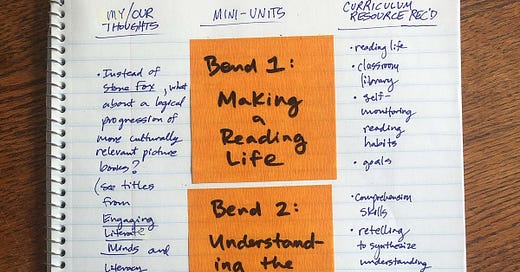 MY/OUR
THOUGHTS
• Instead of
Stone Fox, what
about a logical
progression of
more culturally
relevant picture
books?
(see titles
from
Engaging
Literate
Minds and
Literacy
MINI-UNITS
Bend 1:
Making
a
Reading
Life
Bend 2:
Understand-
ing the
CURRICULUM
RESOURCE REC'D
• reading life
• classroom
library
• self-
monitoring
reading
habits
• goals
• Comprehension
skills
• retelling
to synthesize
understanding